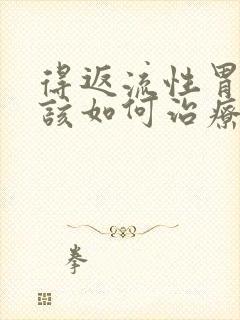 得返流性胃
該如何治療
拳